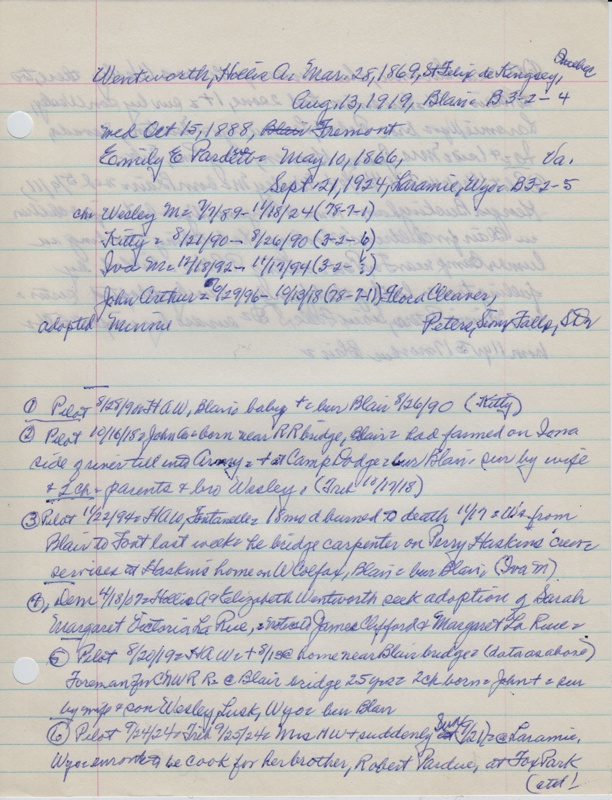 Quebec
Wentworth, Hollis A. Mar. 28, 1869, St Felix de Kingsey,
Aug. 13, 1919, Blair = B3-2-4
med Oct 15, 1888, Blair Fremont
Emily E Pardett = May 10, 1866, Va.
Sept. 21, 1924, Laramie, Wyo = B3-2-5
ch: Wesley M = 7/7/89 - 11/18/24 (78-7-1)
Kitty = 8/21/90 - 8/26/90 (3-2-6)
Iva M = 12/18/92 - 11/17/94 (3-2-?)
John Arthur = 6/29/96 - 10/13/18 (78-7-1) Flora Cleaver,
adopted Minnie Peters, Sioux Falls, S D
① Pilot 8/28/90 = H A W, Blair's baby + = bur Blair 8/26/90 (Kitty)
② Pilot 10/16/18 = John Co = born near R R bridge, Blair = had farmed on Iowa
side of river till into Army = + at Camp Dodge = bur Blair, sur by wife
+ 1 ch = parents + bro Wesley, (Trib 10/17/18)
③ Pilot 11/22/94 = H A W, Fontanelle = 18 mo d burned to death 11/17 = W's from
Blair to Font last week = he bridge carpenter on Perry Haskins' crew =
services at Haskins home on W Colfax, Blair = bur Blair, (Iva M.)
④, Dem 4/18/07 = Hollis A + Elizabeth Wentworth seek adoption of Sarah
Margaret Victoria La Rue, = James Clifford + Margaret La Rue =
⑤ Pilot 8/20/19 = H A W = + 8/13 @ home near Blair bridge = (data as above)
Foreman for Ch W R R = @ Blair bridge 25 yrs = 2 ch born = John + = sur
by wife + son Wesley, Lusk, Wyo = bur Blair
⑥ Pilot 9/24/24 + Trib 9/25/24 = Mrs H W + suddenly Sun 9/21 = @ Laramie,
Wyo = enroute to be cook for her brother, Robert Pardue, at Fox Park
(ctd!